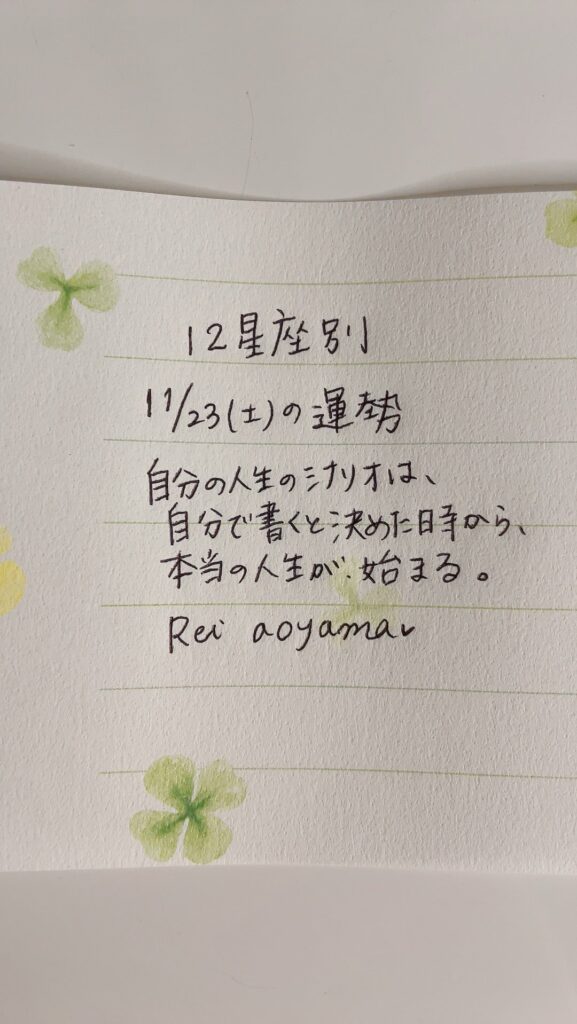 12星座別
11/23(土)の運勢
自分の人生のシナリオは、
自分で書くと決めた時から、
本当の人生が、始まる。
Rei aoyama